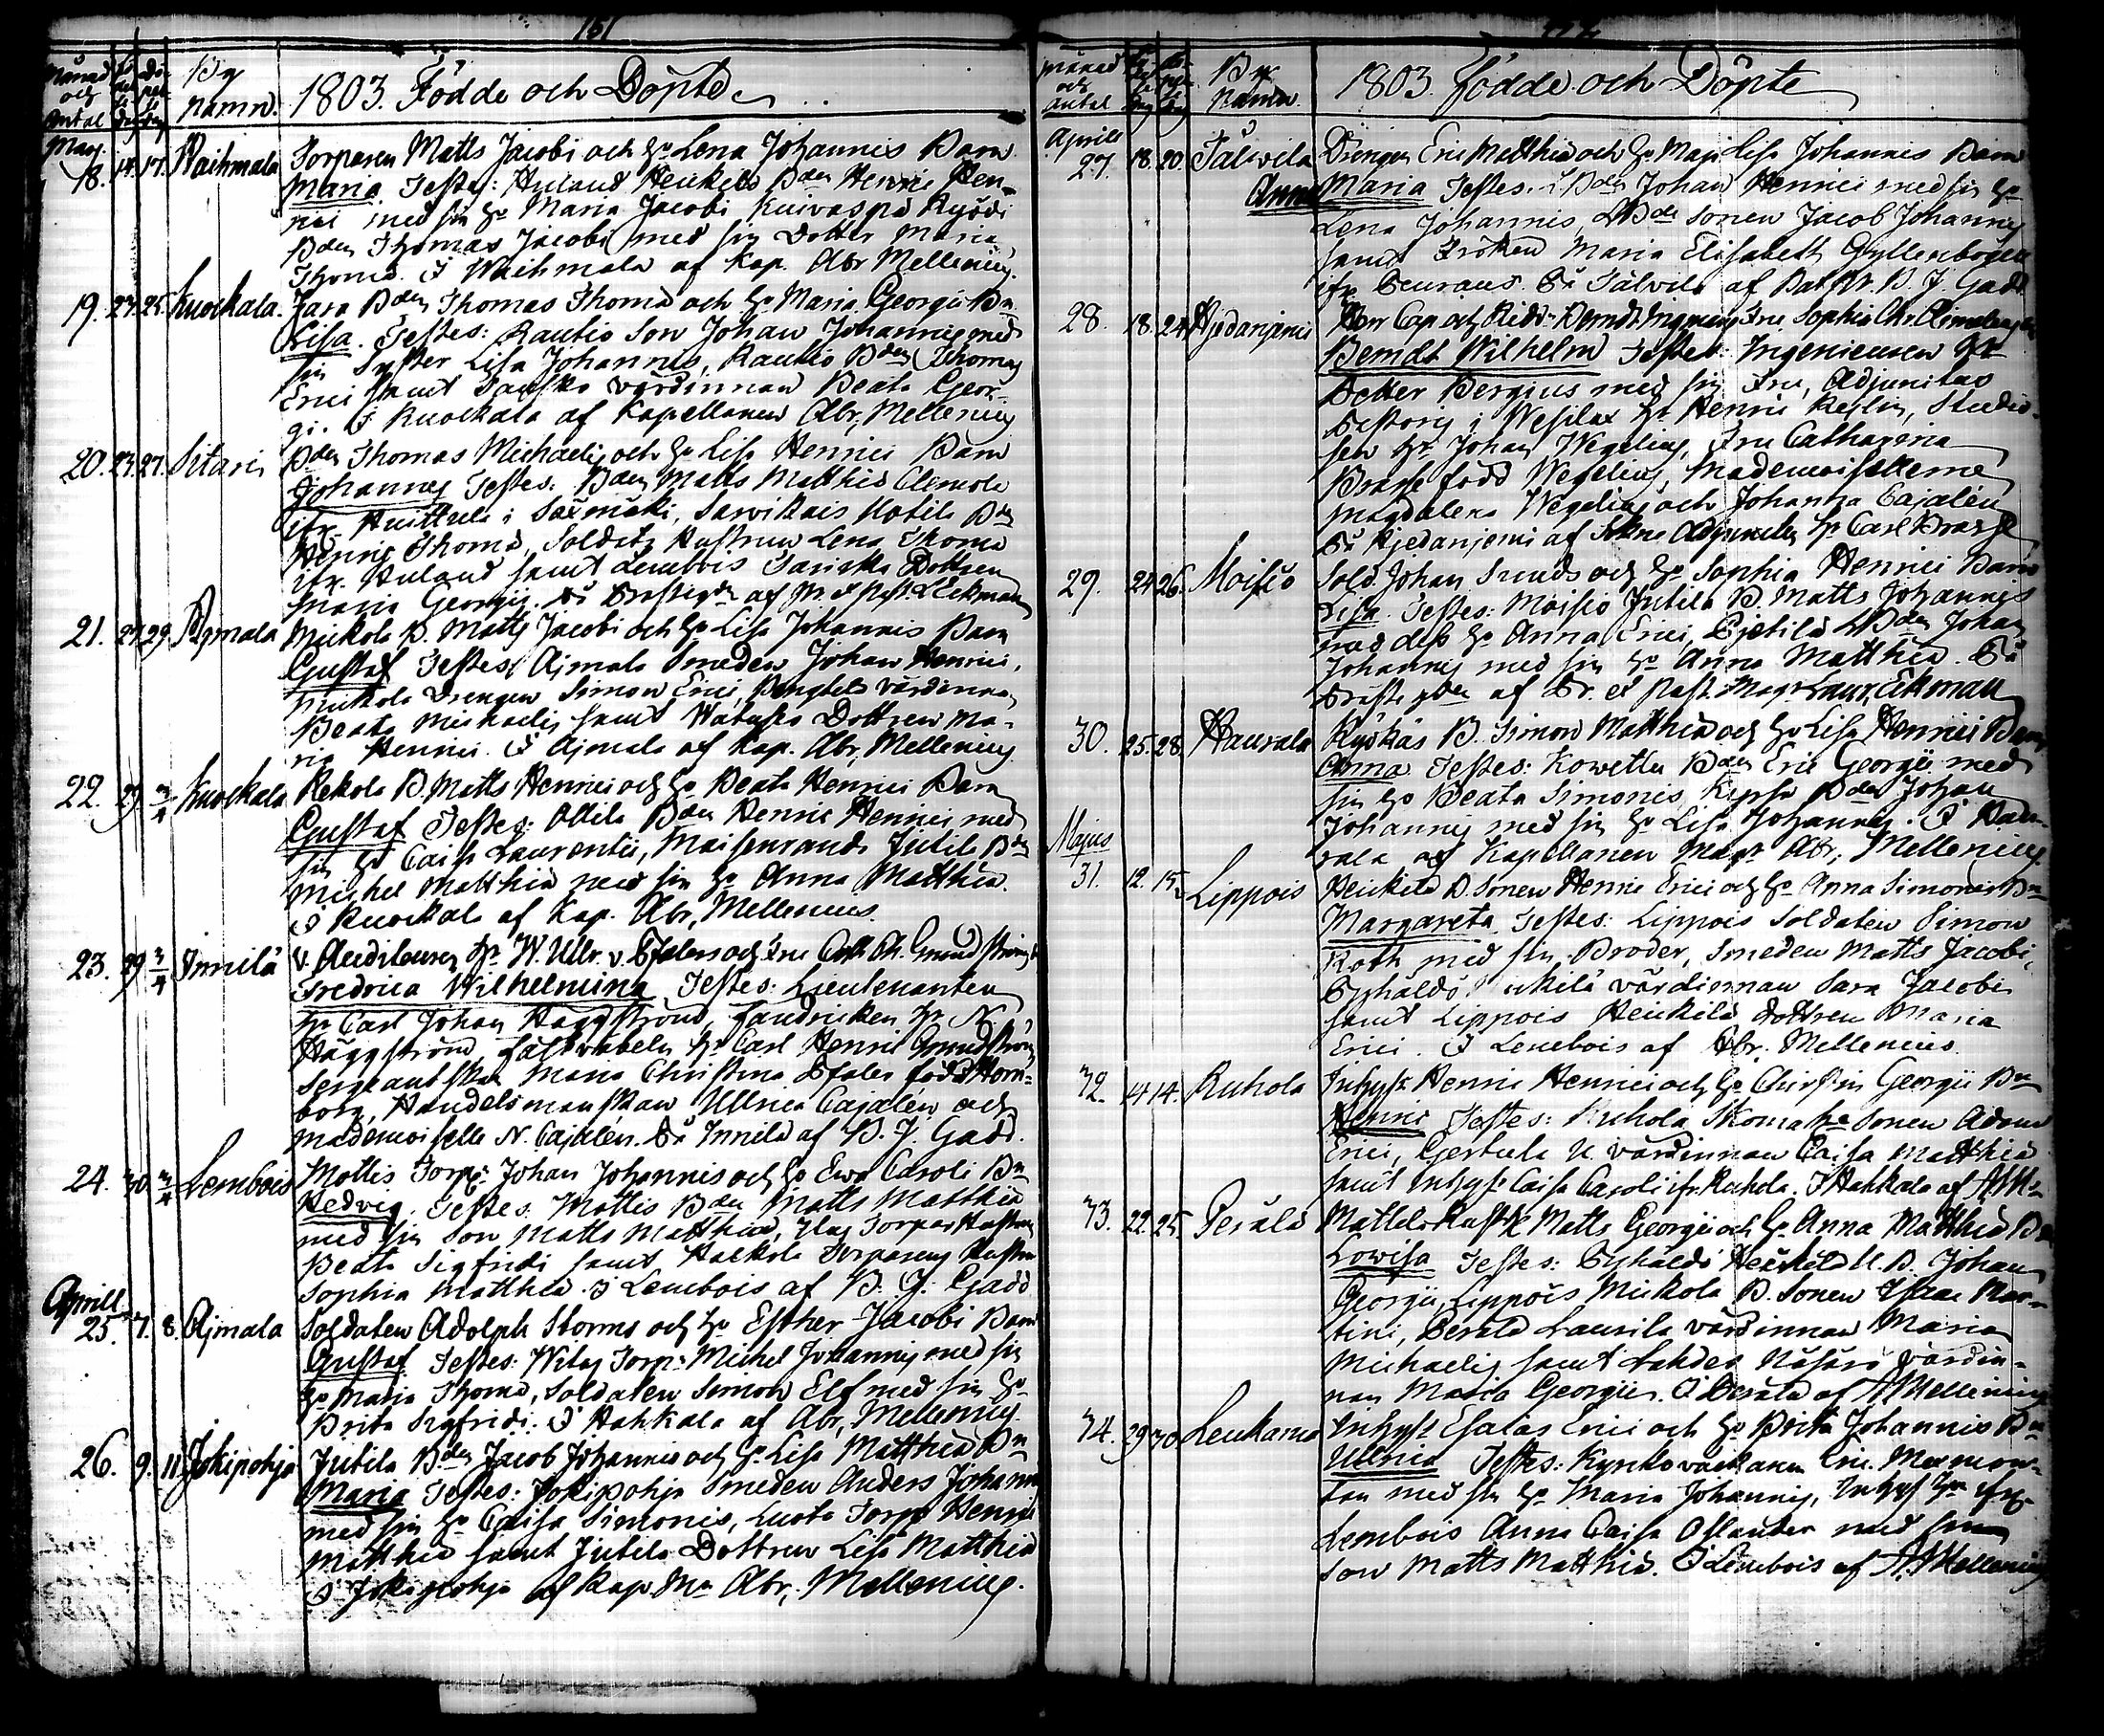 151
Månad och Antal
By namn.
1803. Födde och Döpte
Mars.
18. 14. 17. Waihmala Torparen Matts Jacobi och H:o Lena Johannis Barn
Maria. Testes: Huland Heikels Bden Henric Hen-
rici med sin H:o Maria Jacobi Kuivaspä Kyödi
Bden Thomas Jacobi med sin Dotter Maria
Thomæ. I Waihmala af Kap. Abr. Mellenius.
19. 23. 25. Kuockala. Jara Bden Thomas Thomæ och H:o Maria Georgii Bn
Lisa. Testes: Rautio Son Johan Johannis med
sin Syster Lisa Johannis, Rautio Bden Thomas
Erici samt Tausko värdinnan Beata Geor-
gi. I Kuockala af Kapellanen Abr. Mellenius
20. 23. 27. Sitari Bden Thomas Michaelis och H:o Lisa Henrici Barn
Johannes Testes: Bden Matts Matthiæ Clemola
ifr. Huittula i Säxmäki, Sarvikais Hotila Bd
Henric Thomæ, Soldats Hustrun Lena Thomæ
ifr. Huland samt Lembois Tariska Dottren
Maria Georgii. På Prestgdn af Pr. & Past. L. Eckman
21. 27. 29. Ajmala Mickola B. Matts Jacobi och H:o Lisa Johannis Barn
Gustaf Testes: Ajmala Smeden Johan Henrici,
Mickola Drengen Simon Erici, Penghels värdinnan
Beata Michaelis samt Watusko Dottren Ma-
ria Henrici. I Ajmala af Kap. Abr. Mellenius
22. 29. 3/4 Kuockala Rekola B. Matts Henrici och H:o Beata Henrici Barn
Gustaf Testes: Ollila Bden Henric Henrici med
sin H:o Caisa Laurentii, Maisenranda Jutila Bdn
Michel Matthiæ med sin H:o Anna Matthiæ.
I Kuockala af Kap. Abr. Mellenius.
23. 29. 3/4 Innilä v. Auditeuren Hr W. Ullr. v. Pfaler och Fru Cath. Ch. Grundström
Fredrica Wilhelmina Testes: Lieutenanten
Hr Carl Johan Häggström, Fendriken Hr N.
Häggström, Fältwäbeln Hr Carl Henric Grundström
Sergeantskan Maria Christina Pfaler född Horn-
borg, Handelsmanskan Ullrica Cajalén och
Mademoiselle N. Cajalén. På Innilä af B. J. Gadd.
24. 30. 3/4 Lembois Mottis Torp: Johan Johannis och H:o Ewa Caroli Bn
Hedvig. Testes: Mottis Bden Matts Matthiæ
med sin Son Matts Matthiæ, Torpar Hustrun
Beata Sigfridi samt Hackola Torparens Hustru
Sophia Matthiæ. I Lembois af B. J. Gadd
Aprill
25. 7. 8. Ajmala Soldaten Adolph Storms och H:o Esther Jacobi Barn
Gustaf Testes: Witas Torp: Michel Johannis med sin
H:o Maria Thomæ, Soldaten Simon Elf med sin H:o
Brita Sigfridi. I Hahkala af Abr. Mellenius.
26. 9. 11. Jokipohja Jutila Bden Jacob Johannis och H:o Lisa Matthiæ Bn
Maria Testes: Jokipohja Smeden Anders Johannis
med sin H:o Caisa Simonis, Luoto Torp: Henric
Matthiæ samt Jutila Dottren Lisa Matthiæ
I Jokipohja af Kap. Mr Abr. Mellenius.
Månad och Antal
By Namn
1803. Födde och Döpte
Aprill
27. 18. 20. Tälwila Drengen Eric Matthiæ och H:o Maja Lisa Johannis Barn
Anna Maria Testes: Bden Johan Henrici med sin H:o
Lena Johannis, Bde Sonen Jacob Johannis
samt Fröken Maria Elisabeth Gyllenbögel
På Tälvila af B. J. Gadd
28. 18. 24. Hjedanjemi Herr Cap. och Ridd. Berndt Fru Sophia Chr.
Berndt Wilhelm Testes: Ingenieuren Hr
Petter Bergius med sin Fru, Adjunctus
Pastoris i Wesilax Hr Henric Reslin, Studio-
sen Hr Johan Wegelius, Fru Catharina
Brase född Wegelius, Mademoisellerne
Magdalena Wegelius och Johanna Cajalén
På Hjedanjemi af Sokne Adjuncten Hr Carl Brase
29. 24. 26. Moisio Sold. Johan Sunds och H:o Sophia Henrici Barn
Lisa. Testes: Moisio Jutila B. Matts Johannis
med dess H:o Anna Erici, Pjetilä Bden Johan
Johannis med sin H:o Anna Matthiæ. På
Prestgden af Pr. et Past. Magr Laur. Eckman
30. 25. 28. Haurala Ryökäs B. Simon Matthiæ och H:o Lisa Henrici Barn
Anna Testes: Kowetta Bden Eric Georgii med
sin H:o Beata Simonis, Bden Johan
Johannis med sin H:o Lisa Johannis. I Hau-
rala af Kapellanen Magr Abr. Mellenius
Majus
31. 12. 15. Lippois Heickilä B. Sonen Henric Erici och H:o Anna Simonis Bn
Margareta Testes: Lippois Soldaten Simon
Roth med sin Broder, Smeden Matts Jacobi,
Pyhäldö värdinnan Sara Jacobi
samt Lippois Heickilä Dottren Maria
Erici. I Lembois af Abr. Mellenius.
32. 14. 14. Ruhola Inhys: Henric Henrici och H:o Chirstin Georgii Bn
Henric Testes: Ruhola Skomak:e Sonen Adam
Erici, Gertula N. värdinnan Caisa Matthiæ
samt Inhys: Caisa Caroli ifr. Ruhola. I Hahkala af A. M.
33. 22. 25. Perälä Matts Georgii och H:o Anna Matthiæ Bn
Lowisa Testes: Pyhäldö Heickilä U. B. Johan
Georgii, Lippois Mickola B. Sonen Isaac Mar-
tini, Perälä Laurila värdinnan Maria
Michaelis samt Lahdes Näsärö värdin-
nan Maria Georgii. I Perälä af A. Mellenius
34. 29. 30. Leukania Inhys: Esaias Erici och H:o Brita Johannis Bn
Ullrica Testes: Kyrkoväcktaren Eric Mermon-
tan med sin H:o Maria Johannis, Inhys: H:n ifr.
Lembois Anna Caisa Ollander med sin
Son Matts Matthiæ. I Lembois af A. Mellenius